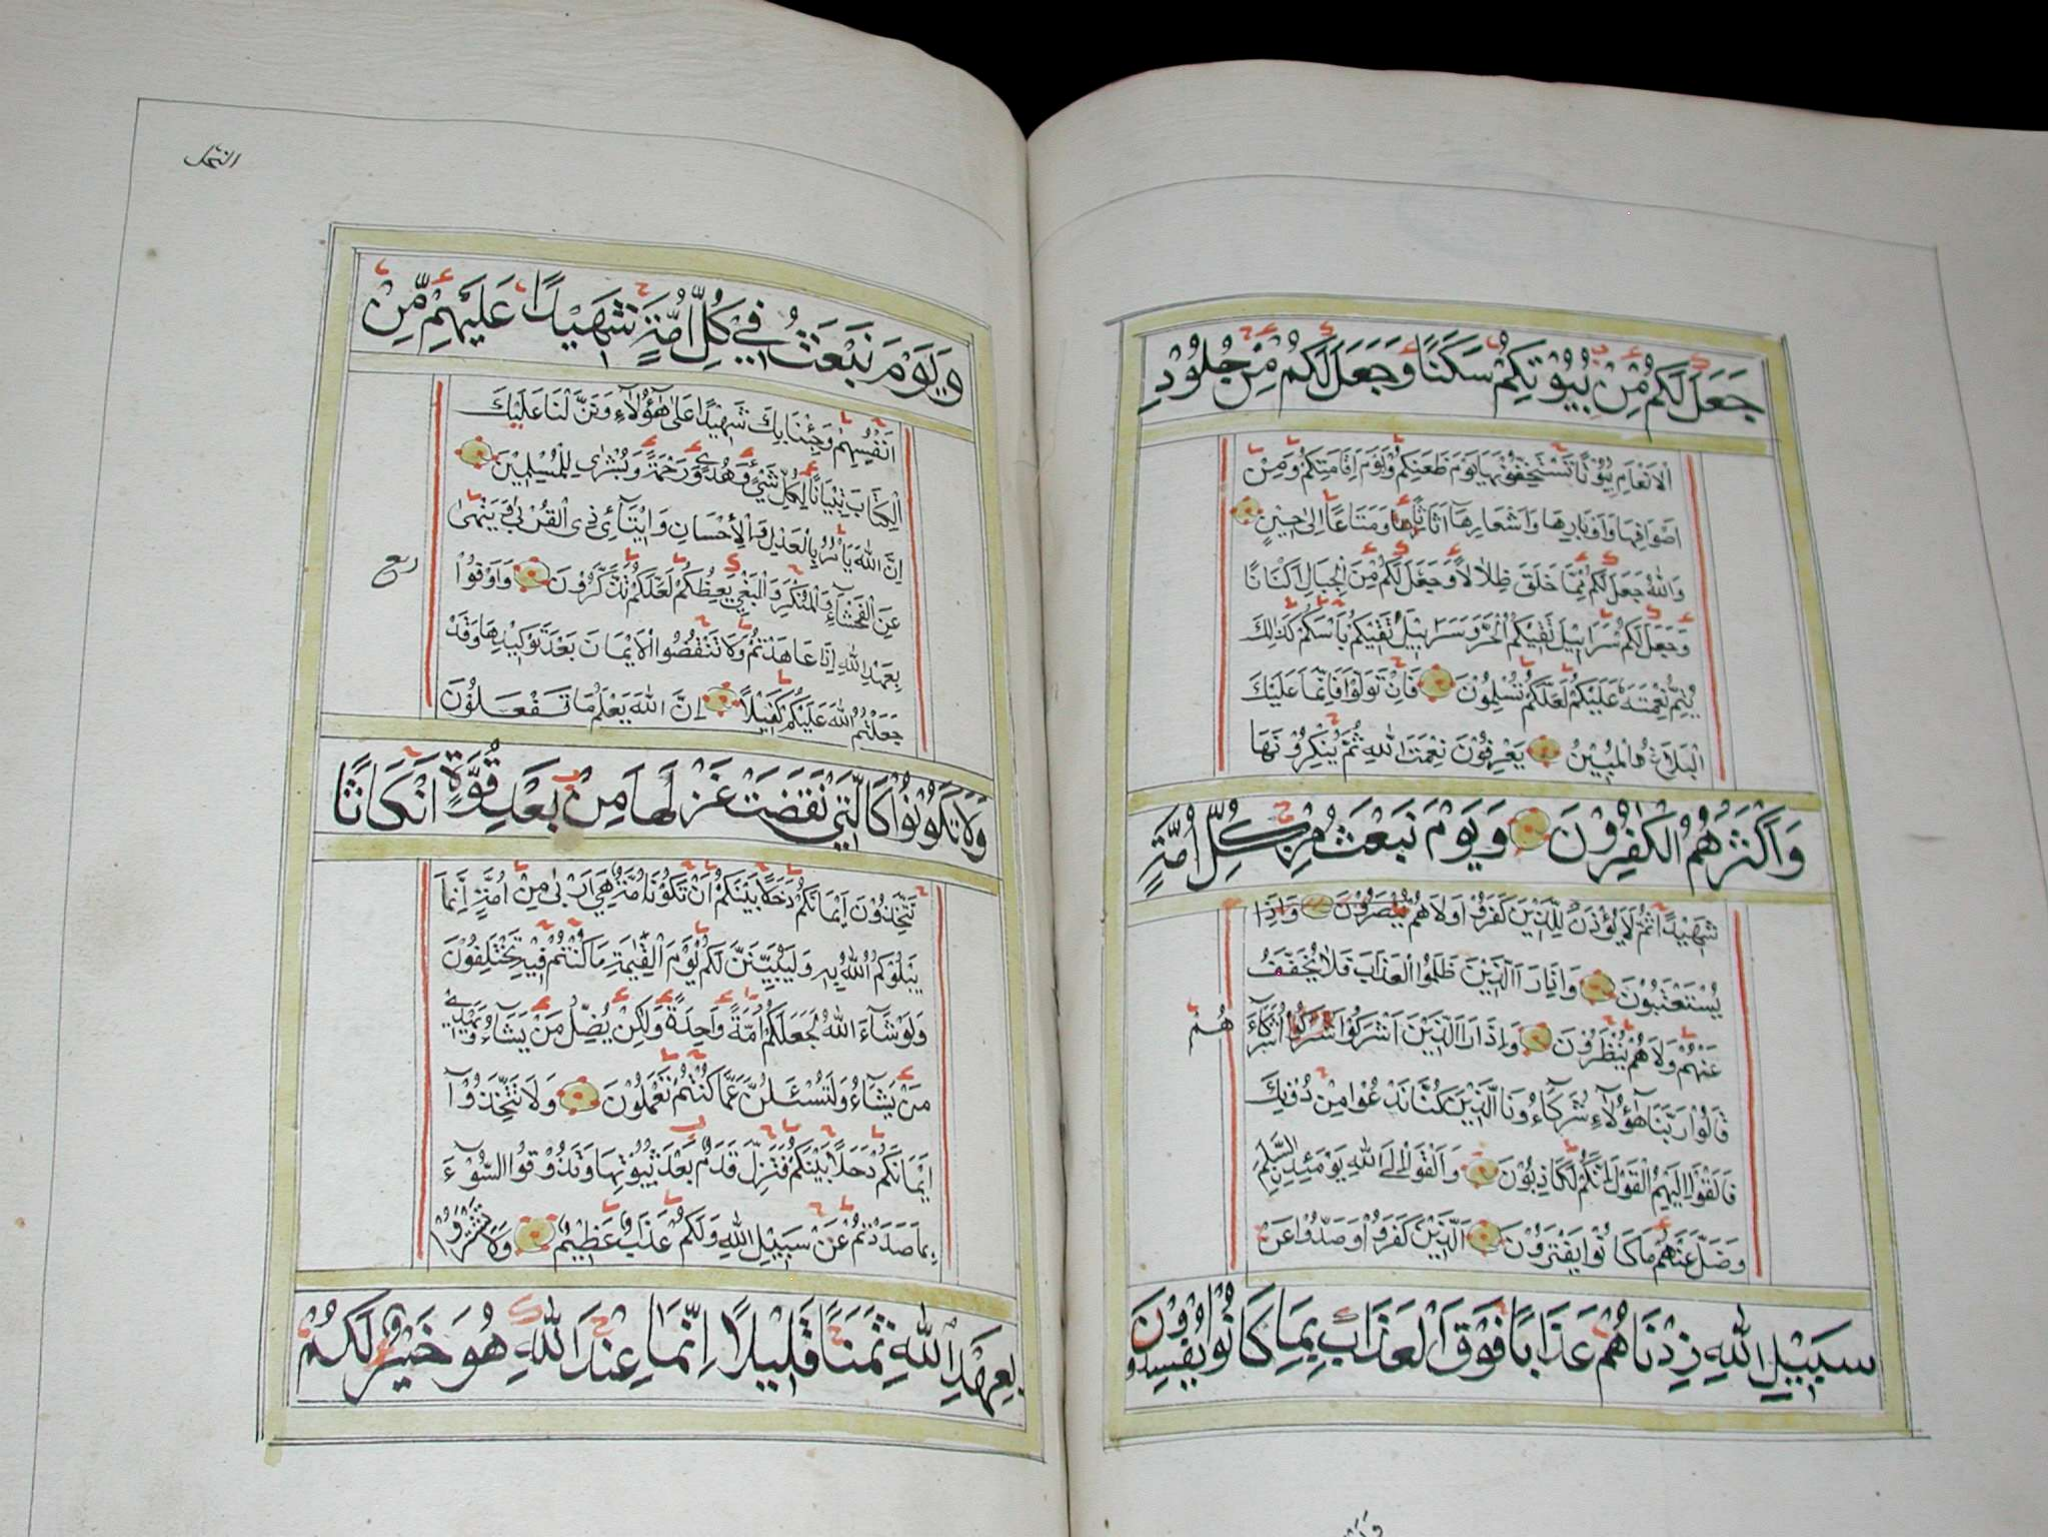 جَعَلَ لَكُمْ مِنْ بُيُوْتِكُمْ سَكَنًا وَجَعَلَ لَكُمْ مِنْ جُلُوْدِ
الْاَنْعَامِ بُيُوْتًا تَسْتَخِفُّوْنَهَا يَوْمَ ظَعْنِكُمْ وَيَوْمَ اِقَامَتِكُمْ وَمِنْ
اَصْوَافِهَا وَاَوْبَارِهَا وَاَشْعَارِهَا اَثَاثًا وَمَتَاعًا اِلٰى حِيْنٍ
وَاللّٰهُ جَعَلَ لَكُمْ مِمَّا خَلَقَ ظِلَالًا وَجَعَلَ لَكُمْ مِنَ الْجِبَالِ اَكْنَانًا
وَجَعَلَ لَكُمْ سَرَابِيْلَ تَقِيْكُمُ الْحَرَّ وَسَرَابِيْلَ تَقِيْكُمْ بَأْسَكُمْ كَذٰلِكَ
يُتِمُّ نِعْمَتَهُ عَلَيْكُمْ لَعَلَّكُمْ تُسْلِمُوْنَ فَاِنْ تَوَلَّوْا فَاِنَّمَا عَلَيْكَ
الْبَلَاغُ الْمُبِيْنُ يَعْرِفُوْنَ نِعْمَتَ اللّٰهِ ثُمَّ يُنْكِرُوْنَهَا
وَاَكْثَرُهُمُ الْكٰفِرُوْنَ وَيَوْمَ نَبْعَثُ مِنْ كُلِّ اُمَّةٍ
شَهِيْدًا ثُمَّ لَا يُؤْذَنُ لِلَّذِيْنَ كَفَرُوْا وَلَا هُمْ يُنْصَرُوْنَ وَاِذَا
يُسْتَعْتَبُوْنَ وَاِذَا رَاَ الَّذِيْنَ ظَلَمُوا الْعَذَابَ فَلَا يُخَفَّفُ
عَنْهُمْ وَلَا هُمْ يُنْظَرُوْنَ وَاِذَا رَاَ الَّذِيْنَ اَشْرَكُوْا شَرَكُوْا شُرَكَآءَ هُمْ
قَالُوْا رَبَّنَا هٰٓؤُلَآءِ شُرَكَآءُونَا الَّذِيْنَ كُنَّا نَدْعُوْا مِنْ دُوْنِكَ
فَاَلْقَوْا اِلَيْهِمُ الْقَوْلَ اِنَّكُمْ لَكَاذِبُوْنَ وَاَلْقَوْا اِلَى اللّٰهِ يَوْمَئِذٍ السَّلَمَ
وَضَلَّ عَنْهُمْ مَا كَانُوْا يَفْتَرُوْنَ اَلَّذِيْنَ كَفَرُوْا وَصَدُّوْا عَنْ
سَبِيْلِ اللّٰهِ زِدْنَاهُمْ عَذَابًا فَوْقَ الْعَذَابِ بِمَا كَانُوْا يُفْسِدُوْنَ
النحل
وَيَوْمَ نَبْعَثُ فِيْ كُلِّ اُمَّةٍ شَهِيْدًا عَلَيْهِمْ مِّنْ
اَنْفُسِهِمْ وَجِئْنَا بِكَ شَهِيْدًا عَلٰى هٰٓؤُلَآءِ وَنَزَّلْنَا عَلَيْكَ
الْكِتَابَ تِبْيَانًا لِكُلِّ شَيْءٍ وَهُدًى وَرَحْمَةً وَبُشْرٰى لِلْمُسْلِمِيْنَ
اِنَّ اللّٰهَ يَأْمُرُ بِالْعَدْلِ وَالْاِحْسَانِ وَاِيْتَآئِ ذِي الْقُرْبٰى وَيَنْهٰى
ربع
عَنِ الْفَحْشَآءِ وَالْمُنْكَرِ وَالْبَغْيِ يَعِظُكُمْ لَعَلَّكُمْ تَذَكَّرُوْنَ وَاَوْفُوْا
بِعَهْدِ اللّٰهِ اِذَا عَاهَدْتُمْ وَلَا تَنْقُضُوا الْاَيْمَانَ بَعْدَ تَوْكِيْدِهَا وَقَدْ
جَعَلْتُمُ اللّٰهَ عَلَيْكُمْ كَفِيْلًا اِنَّ اللّٰهَ يَعْلَمُ مَا تَفْعَلُوْنَ
وَلَا تَكُوْنُوْا كَالَّتِيْ نَقَضَتْ غَزْلَهَا مِنْ بَعْدِ قُوَّةٍ اَنْكَاثًا
تَتَّخِذُوْنَ اَيْمَانَكُمْ دَخَلًا بَيْنَكُمْ اَنْ تَكُوْنَ اُمَّةٌ هِيَ اَرْبٰى مِنْ اُمَّةٍ اِنَّمَا
يَبْلُوْكُمُ اللّٰهُ بِهِ وَلَيُبَيِّنَنَّ لَكُمْ يَوْمَ الْقِيٰمَةِ مَا كُنْتُمْ فِيْهِ تَخْتَلِفُوْنَ
وَلَوْ شَآءَ اللّٰهُ لَجَعَلَكُمْ اُمَّةً وَاحِدَةً وَلٰكِنْ يُضِلُّ مَنْ يَشَآءُ وَيَهْدِيْ
مَنْ يَشَآءُ وَلَتُسْئَلُنَّ عَمَّا كُنْتُمْ تَعْمَلُوْنَ وَلَا تَتَّخِذُوْٓا
اَيْمَانَكُمْ دَخَلًا بَيْنَكُمْ فَتَزِلَّ قَدَمٌ بَعْدَ ثُبُوْتِهَا وَتَذُوْقُوا السُّوْءَ
بِمَا صَدَدْتُمْ عَنْ سَبِيْلِ اللّٰهِ وَلَكُمْ عَذَابٌ عَظِيْمٌ وَلَا تَشْتَرُوْا
بِعَهْدِ اللّٰهِ ثَمَنًا قَلِيْلًا اِنَّمَا عِنْدَ اللّٰهِ هُوَ خَيْرٌ لَكُمْ